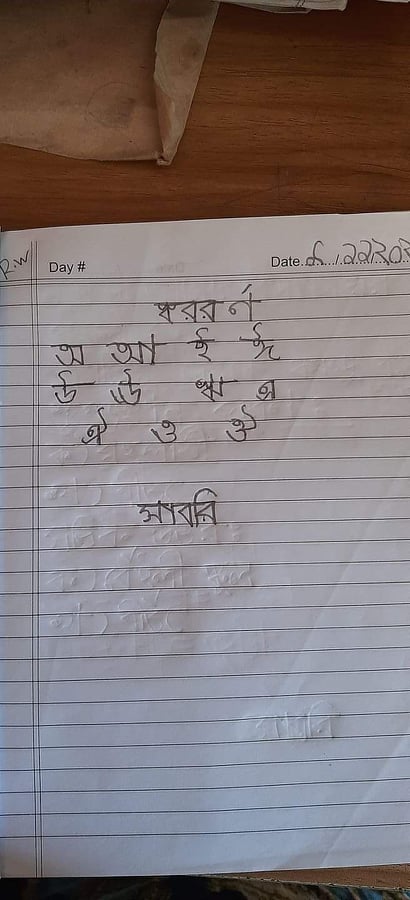 R.W
Day #
Date
স্বরবর্ণ
অ আ ই ঈ
উ ঊ ঋ এ
ঐ ও ঔ
সাবরি